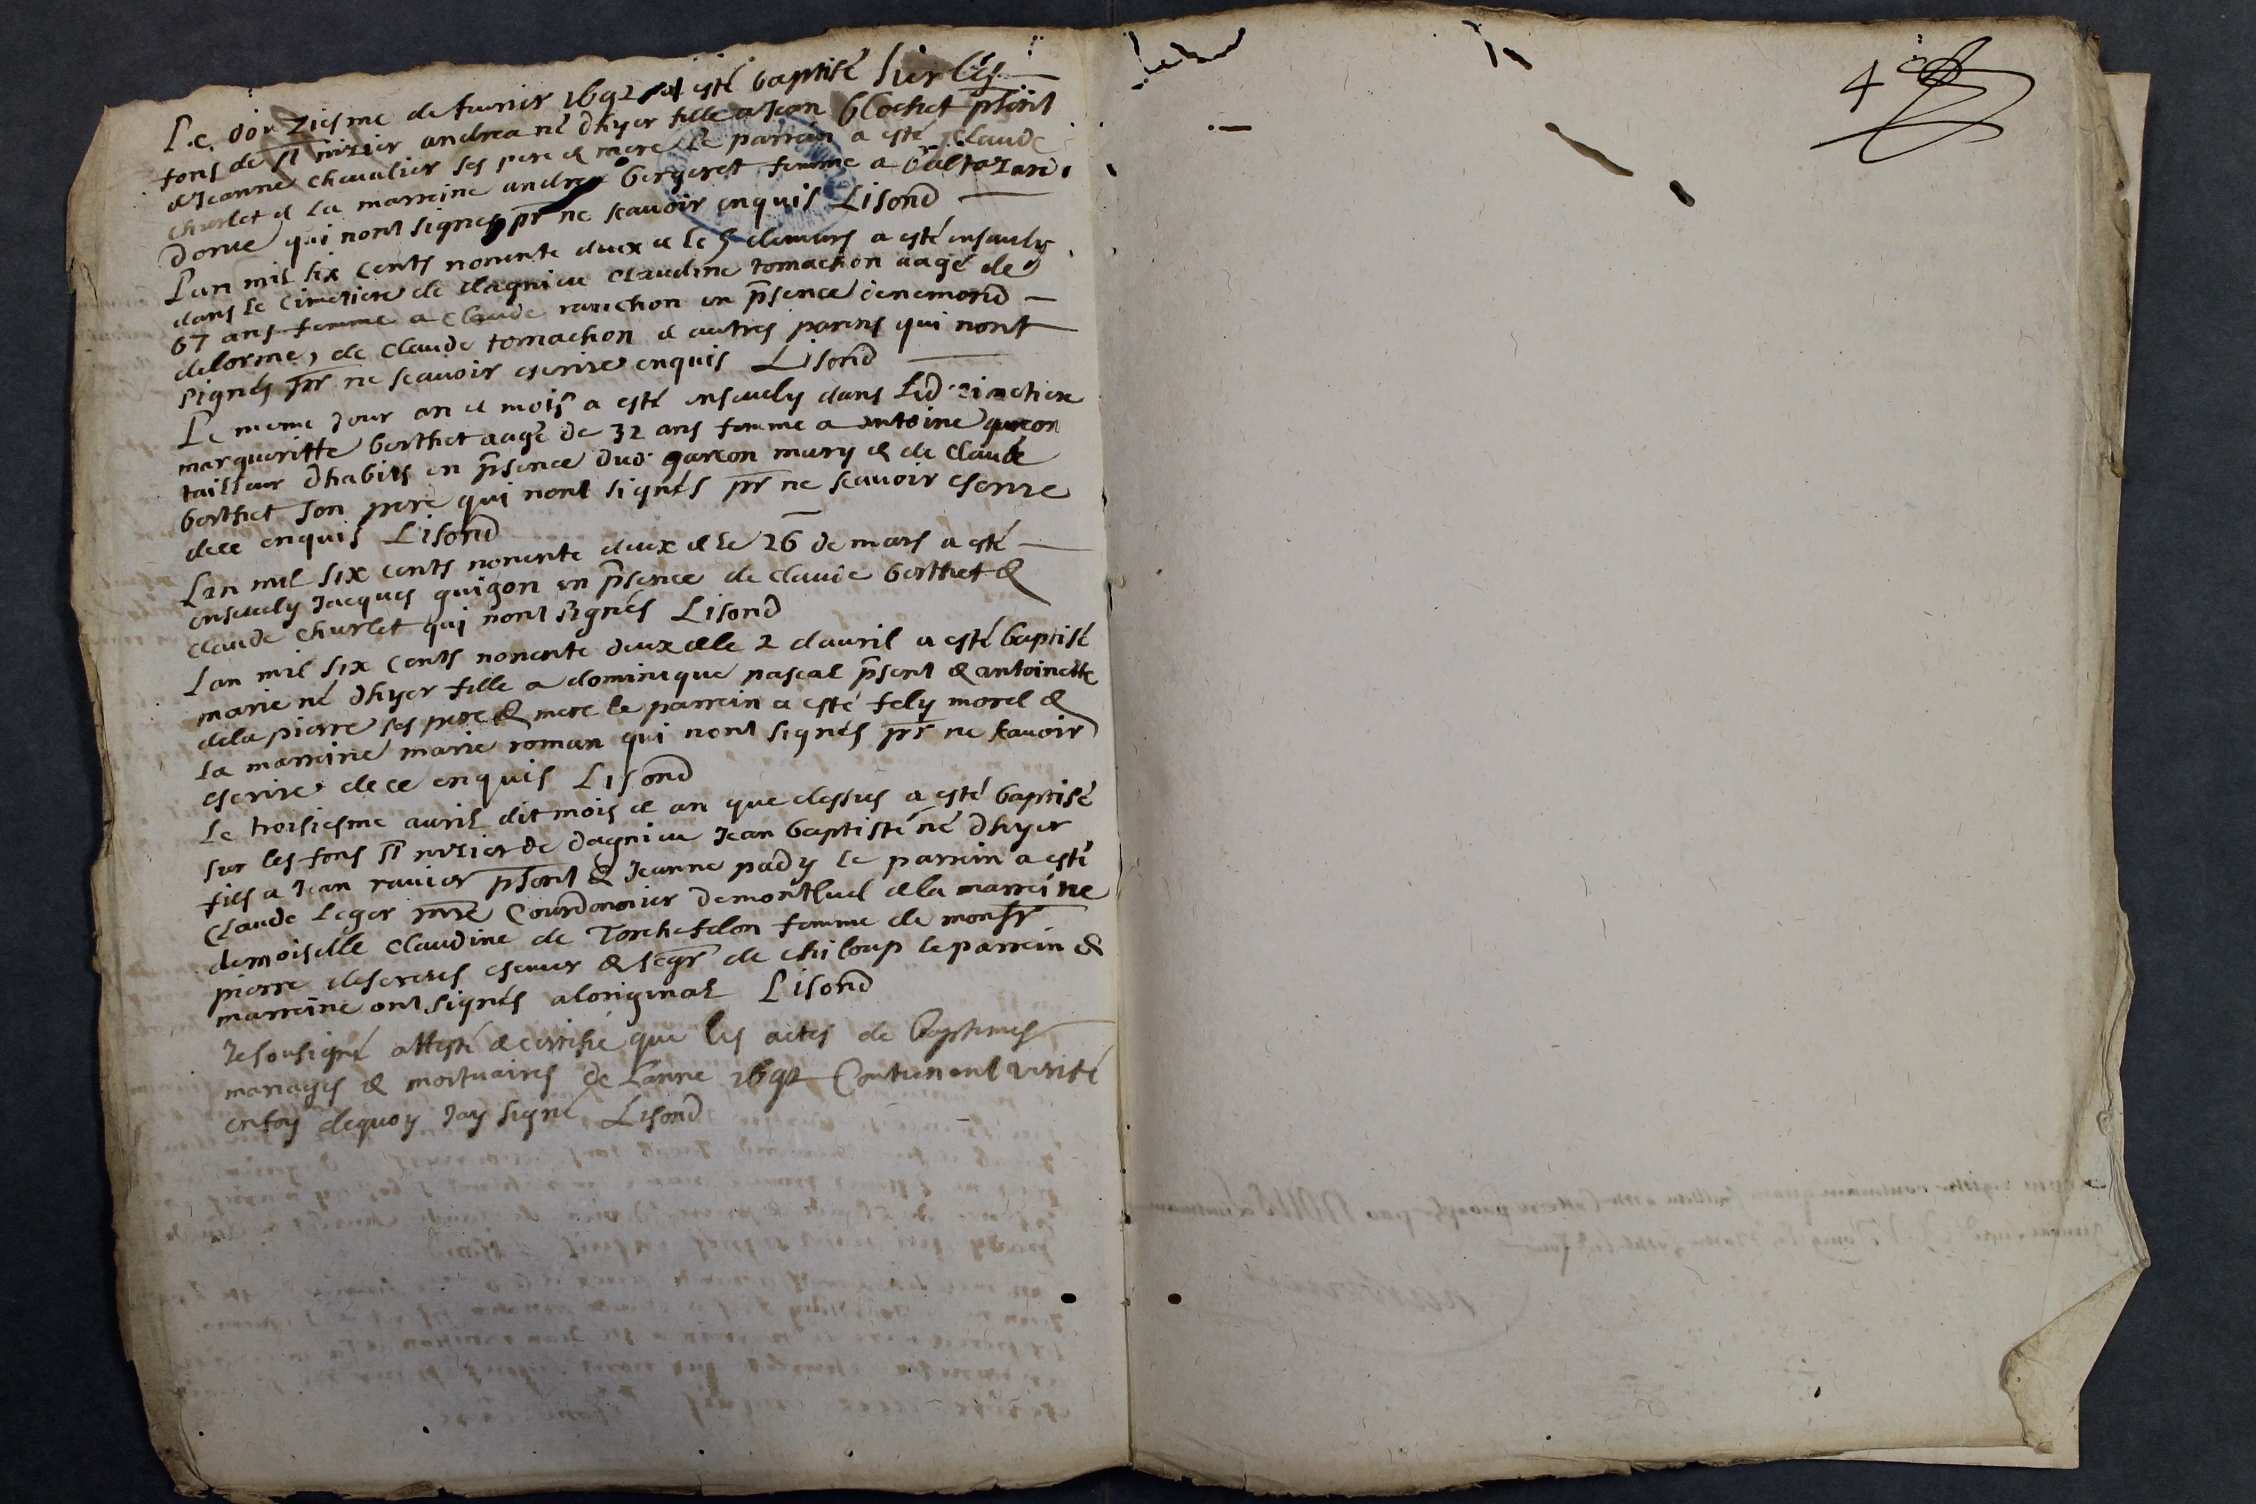 Le douziesme de feuvrier 1692 a esté baptisé sur les
fons de st nizier andrea né dhyer fille a Jean blochet psent
& Jeanne chevalier ses pere & mere le parrein a esté Claude
churlet & la marreine andrea bergeret femme a baltazard
dorue qui nont signes pr ne scavoir enquis Lisond
Lan mil six cents nonente deux & le 5 de mars a esté ensevely
dans le cimetiere de dagnieu Claudine tomachon aagé de
67 ans femme a Claude ranchon en psence denemond
delorme, de Claude tomachon & autres parens qui nont
signés pr ne scavoir escrire enquis Lisond
Le meme jour an & mois a esté ensevely dans led cimetiere
margueritte berthet aagé de 32 ans femme a antoine garcon
tailleur dhabits en psence dud garcon mary & de Claude
berthet son pere qui nont signés pr ne scavoir escrire
dece enquis Lisond
Lan mil six cents nonente deux & le 26 de mars a esté
ensevely Jacques guigon en psence de claude berthet &
claude churlet qui nont signés Lisond
Lan mil six cents nonente deux & le 2 davril a esté baptisé
marie né dhyer fille a dominique pascal psent & antoinette
dela pierre ses pere & mere le parrein a esté fely morel &
la marreine marie roman qui nont signés pr ne scavoir
escrire dece enquis Lisond
Le troisiesme avril dit mois & an que dessus a esté baptisé
sur les fons st nizier de dagnieu Jean baptisté né dhyer
fils a Jean ravier psent & Jeanne pady le parrein a esté
Claude Leger mre Courdonnier de montluel & la marreine
demoiselle Claudine de Torchefelon femme de monsr
pierre descreues escuier & segr de chiloup le parrein &
marreine ont signés aloriginal Lisond
Je sousigné atteste & certifie que les actes de baptemes
mariages & mortuaires de Lanne 1692 Contienent verité
en foy dequoy Jay signé Lisond
4